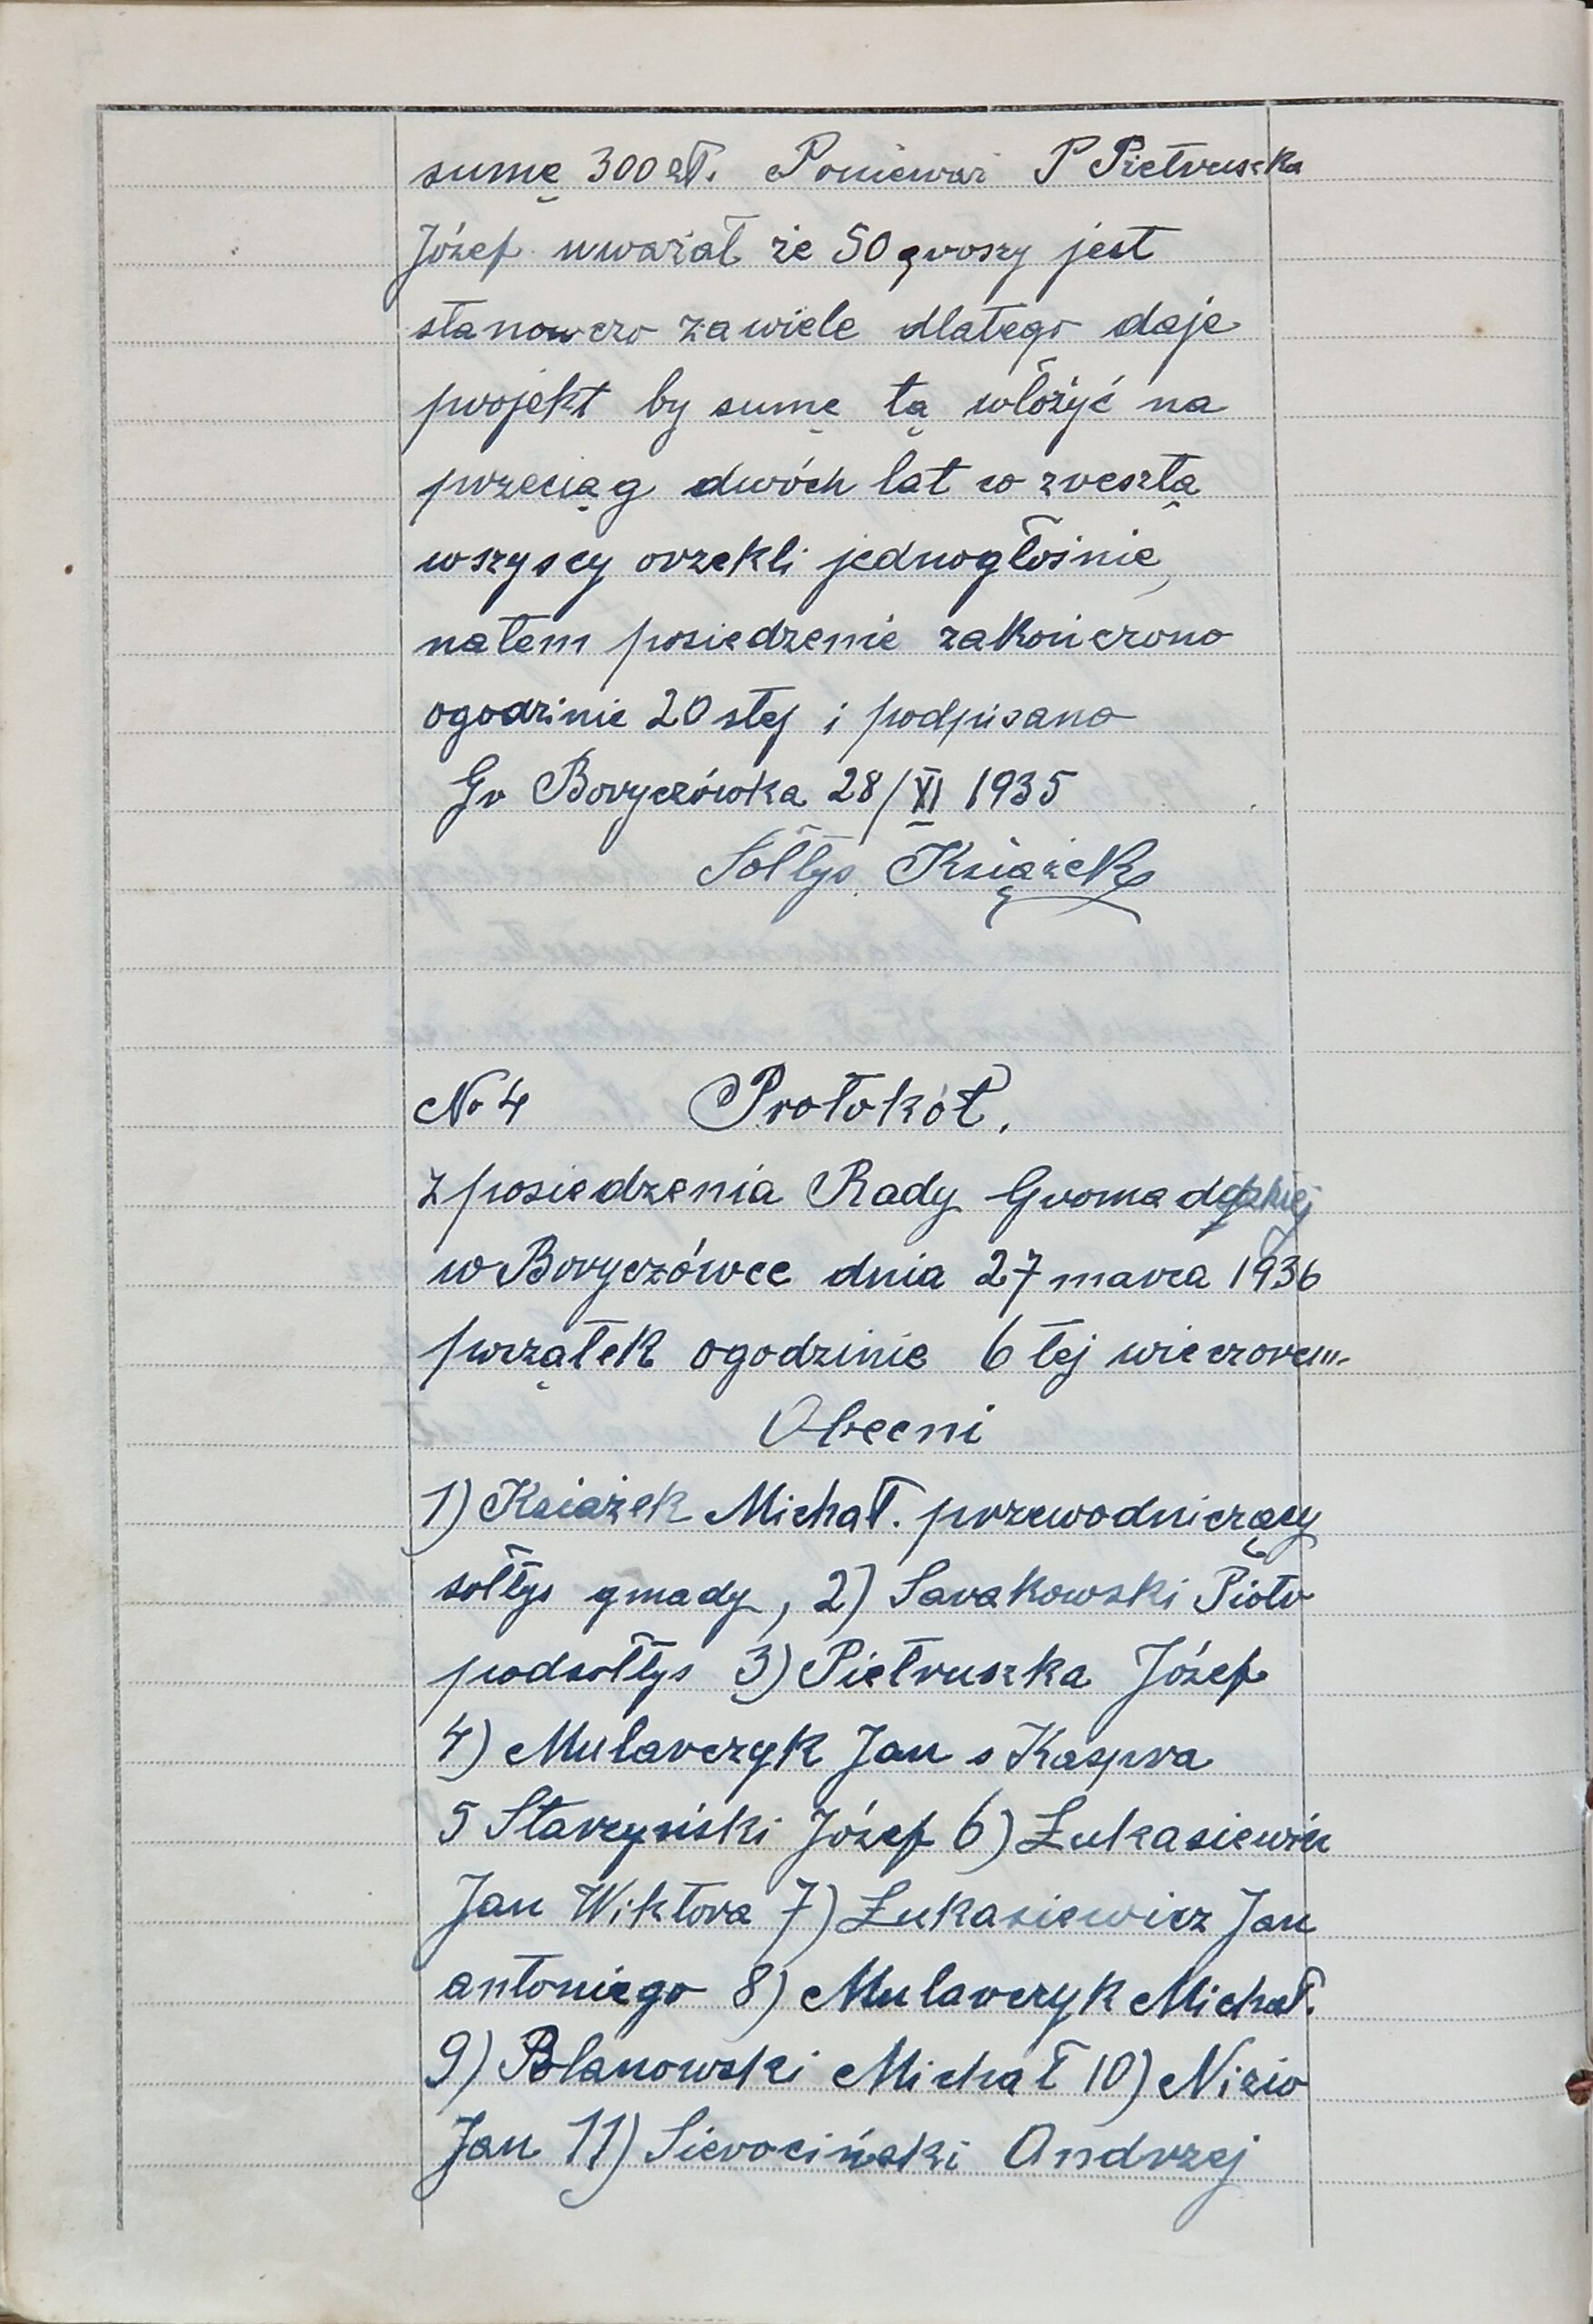 sumę 300 zł. Ponieważ P Pietruszka
Józef uważał że 50 groszy jest
stanowczo zawiele dlatego daje
projekt by sumę tą włożyć na
przeciąg dwóch lat co zresztą
wszyscy orzekli jednogłośnie,
natem posiedzenie zakończono
ogodzinie 20 stej i podpisano
Gr Boryczówka 28/XI 1935
Sołtys Książek
No 4 Protokół.
z posiedzenia Rady Gromadzkiej
w Boryczówce dnia 27 marca 1936
początek ogodzinie 6 tej wieczorem
Obecni
1) Książek Michał. przewodniczący
sołtys gmady, 2) Sarakowski Piotr
podsołtys 3) Pietruszka Józef
4) Mularczyk Jan s Kaspra
5 Starzyński Józef 6) Łukasiewicz
Jan Wiktora 7) Łukasiewicz Jan
antoniego 8) Mularczyk Michał.
9) Polanowski Michał 10) Nizio
Jan 11) Sierociński Andrzej